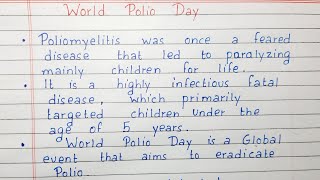 World Polio Day
• Poliomyelitis was once a feared
disease that led to paralyzing
mainly children for life.
• It is a highly infectious fatal
disease, which primarily
targeted children under the
age of 5 years.
• World Polio Day is a Global
event that aims to eradicate
Polio.